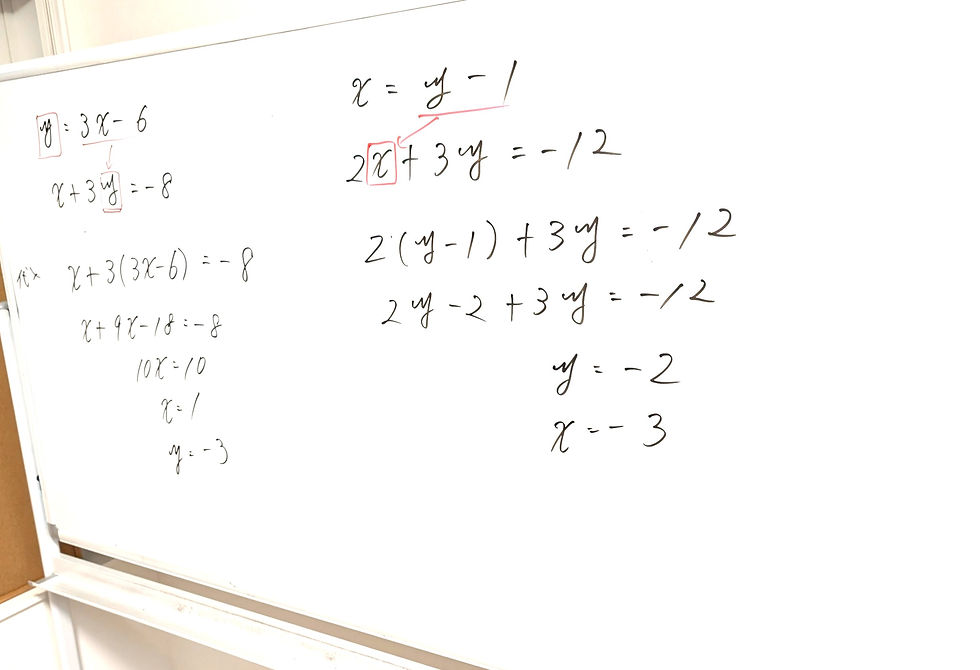 y = 3x - 6
x + 3y = -8
代入 x + 3(3x-6) = -8
x + 9x - 18 = -8
10x = 10
x = 1
y = -3
x = y - 1
2x + 3y = -12
2(y-1) + 3y = -12
2y - 2 + 3y = -12
y = -2
x = -3